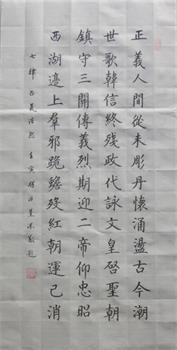 正義人間從未彫丹懷涌盪古今潮
世歌韓信終殘政代詠文皇啓聖朝
鎮守三關傳義烈期迎二帝仰忠昭
西湖邊上羣邪跪瞻殘紅朝運已消
七律 浩然 壬寅